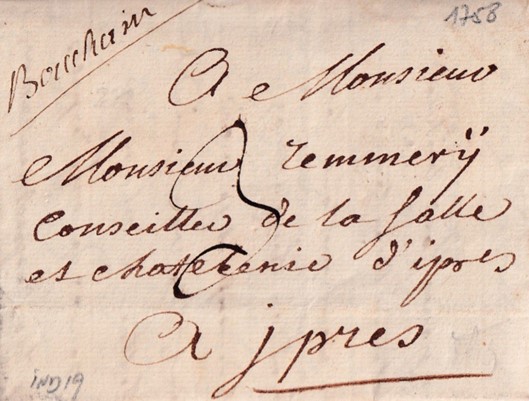 1758
Bouchain
A Monsieur
Monsieur Zemmerÿ
Conseiller de la Salle
et chatelenie d'ipres
A jpres
IND 19